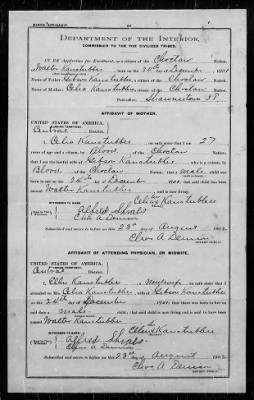 DEPARTMENT OF THE INTERIOR,
COMMISSION TO THE FIVE CIVILIZED TRIBES.
IN RE Application for Enrollment, as a citizen of the Choctaw Nation, of
Walter Kanstubbe, born on the 24th day of December, 1901
Name of Father: Gibson Kanstubbe, a citizen of the Choctaw Nation.
Name of Mother: Celia Kanstubbe, a citizen of the Choctaw Nation.
Postoffice, Shawneetown I.T.
AFFIDAVIT OF MOTHER.
UNITED STATES OF AMERICA,
INDIAN TERRITORY,
Central District.
I, Celia Kanstubbe, on oath state that I am 27
years of age and a citizen, by Blood, of the Choctaw Nation;
that I am the lawful wife of Gibson Kanstubbe, who is a citizen, by
Blood, of the Choctaw Nation; that a male child was
born to me on 24th day of December, 1901, that said child has been
named Walter Kanstubbe, and is now living.
Celia Kanstubbe
WITNESSES TO MARK:
Alfred
Subscribed and sworn to before me this 23rd day of August, 1902.
AFFIDAVIT OF ATTENDING PHYSICIAN, OR MIDWIFE.
UNITED STATES OF AMERICA,
INDIAN TERRITORY,
Central District.
I, Celin Kanstubbee, a midwife, on oath state that I
attended on Mrs. Celia Kanstubbe, wife of Gibson Kanstubbe
on the 24th day of December, 1901; that there was born to her on said
date a male child; that said child is now living and is said to have been
named Walter Kanstubbe
WITNESSES TO MARK:
Alfred
Subscribed and sworn to before me this 23rd day of August, 1902.